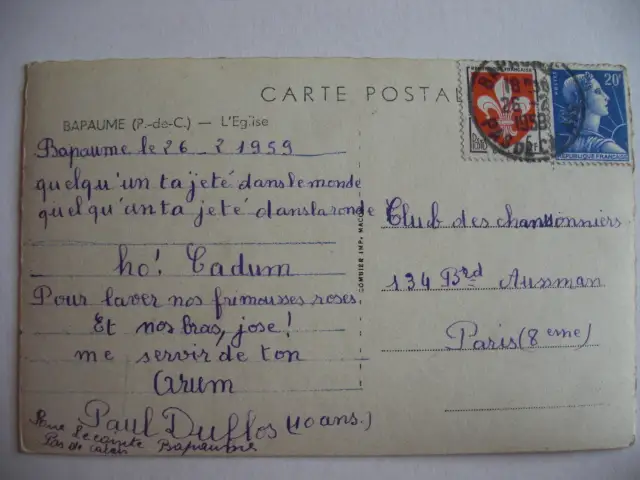 CARTE POSTA
BAPAUME (P.-de-C.) — L'Eglise
Bapaume le 26 _ 2 1959
quelqu'un ta jeté dans le monde
quelqu'un ta jeté dans la ronde
ho! Cadum
Pour laver nos frimousses roses
Et nos bras, jose!
me servir de ton
Arum
Paul Duflos (10 ans.)
Rue Lecointe
Pas de Calais Bapaume
COMBIER IMP. MACON
REPUBLIQUE FRANÇAISE
LILLE
BAPAUME
18 30
26 2
1959
PAS DE C
20F
POSTES
REPUBLIQUE FRANÇAISE
Club des chansonniers
134 Brd Ausman
Paris (8 eme)